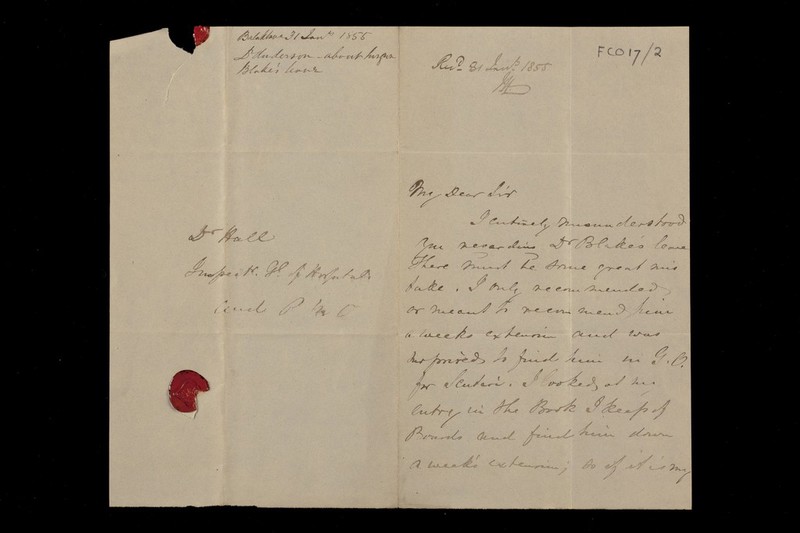 Balaklava 31 Jany 1855
Dr Anderson - about Surgeon
Blake's leave
Dr Hall
Inspr. Gl. of Hospitals
and P M O
FCO17/2
Recd 31 Jany 1855
JH
My Dear Sir
I entirely misunderstood
you regarding Dr Blake's leave
There must be some great mis
take. I only recommended
or meant to recommend him
a weeks extension and was
surprised to find him in G.O.
for Scutari. I looked at my
entry in the Book I keep of
Boards and find him down
a week's extension; so if it is my